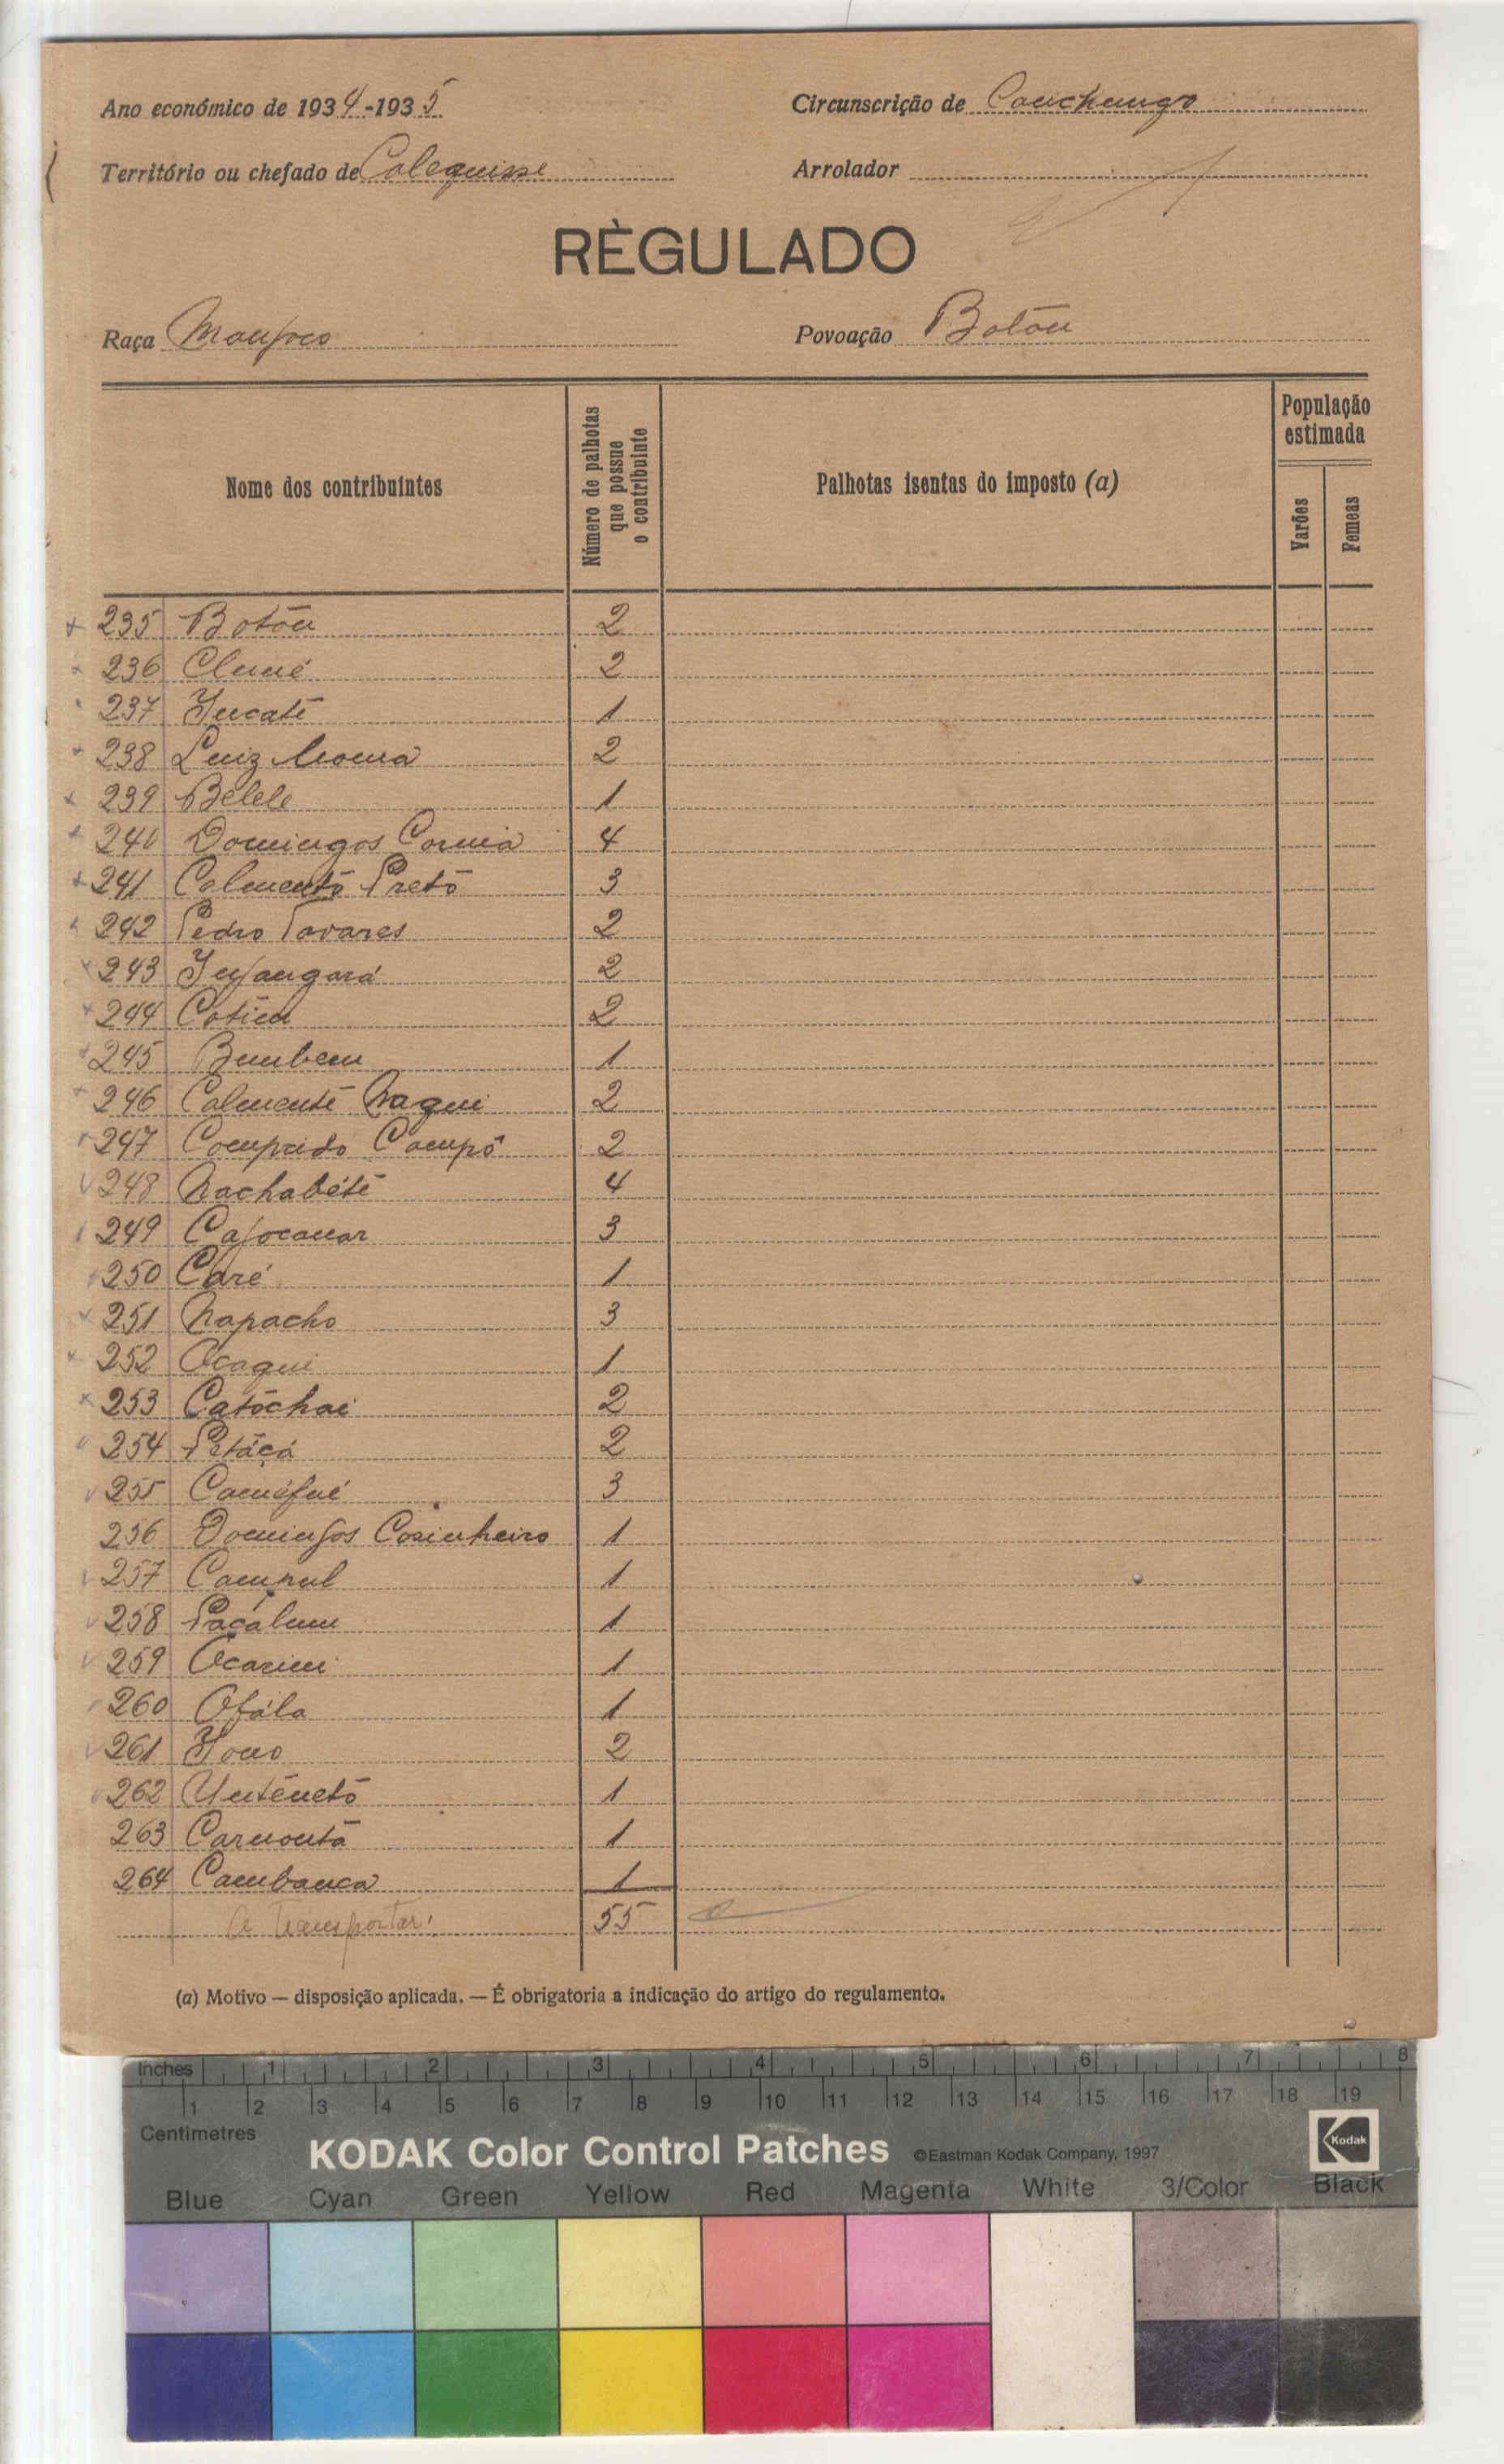 Ano económico de 1934-1935
Circunscrição de Canchungo
Território ou chefado de Calequisse
Arrolador
RÈGULADO
Raça Manjaco
Povoação Botau
Nome dos contribuintes
Número de palhotas que possue o contribuinte
Palhotas isentas do imposto (a)
População estimada
Varões
Femeas
235 Botau 2
236 2
237 Jucaté 1
238 Luiz 2
239 Bélélé 1
240 Domingos Correia 4
241 Preto 3
242 Pedro Tavares 2
243 Injangará 2
244 2
245 Bumbem 1
246 Naqui 2
247 Comprido Campô 2
248 Nachabété 4
249 Cajocanar 3
250 Caré 1
251 Napacho 3
252 Ocaqui 1
253 Catóchai 2
254 Petáçá 2
255 3
256 Domingos Cosinheiro 1
257 1
258 1
259 1
260 1
261 2
262 1
263 1
264 Cambanca 1
A Transportar: 55
(a) Motivo — disposição aplicada. — É obrigatoria a indicação do artigo do regulamento.
Inches 1 2 3 4 5 6 7 8
1 2 3 4 5 6 7 8 9 10 11 12 13 14 15 16 17 18 19
Centimetres
KODAK Color Control Patches ©Eastman Kodak Company, 1997 Kodak
Blue Cyan Green Yellow Red Magenta White 3/Color Black